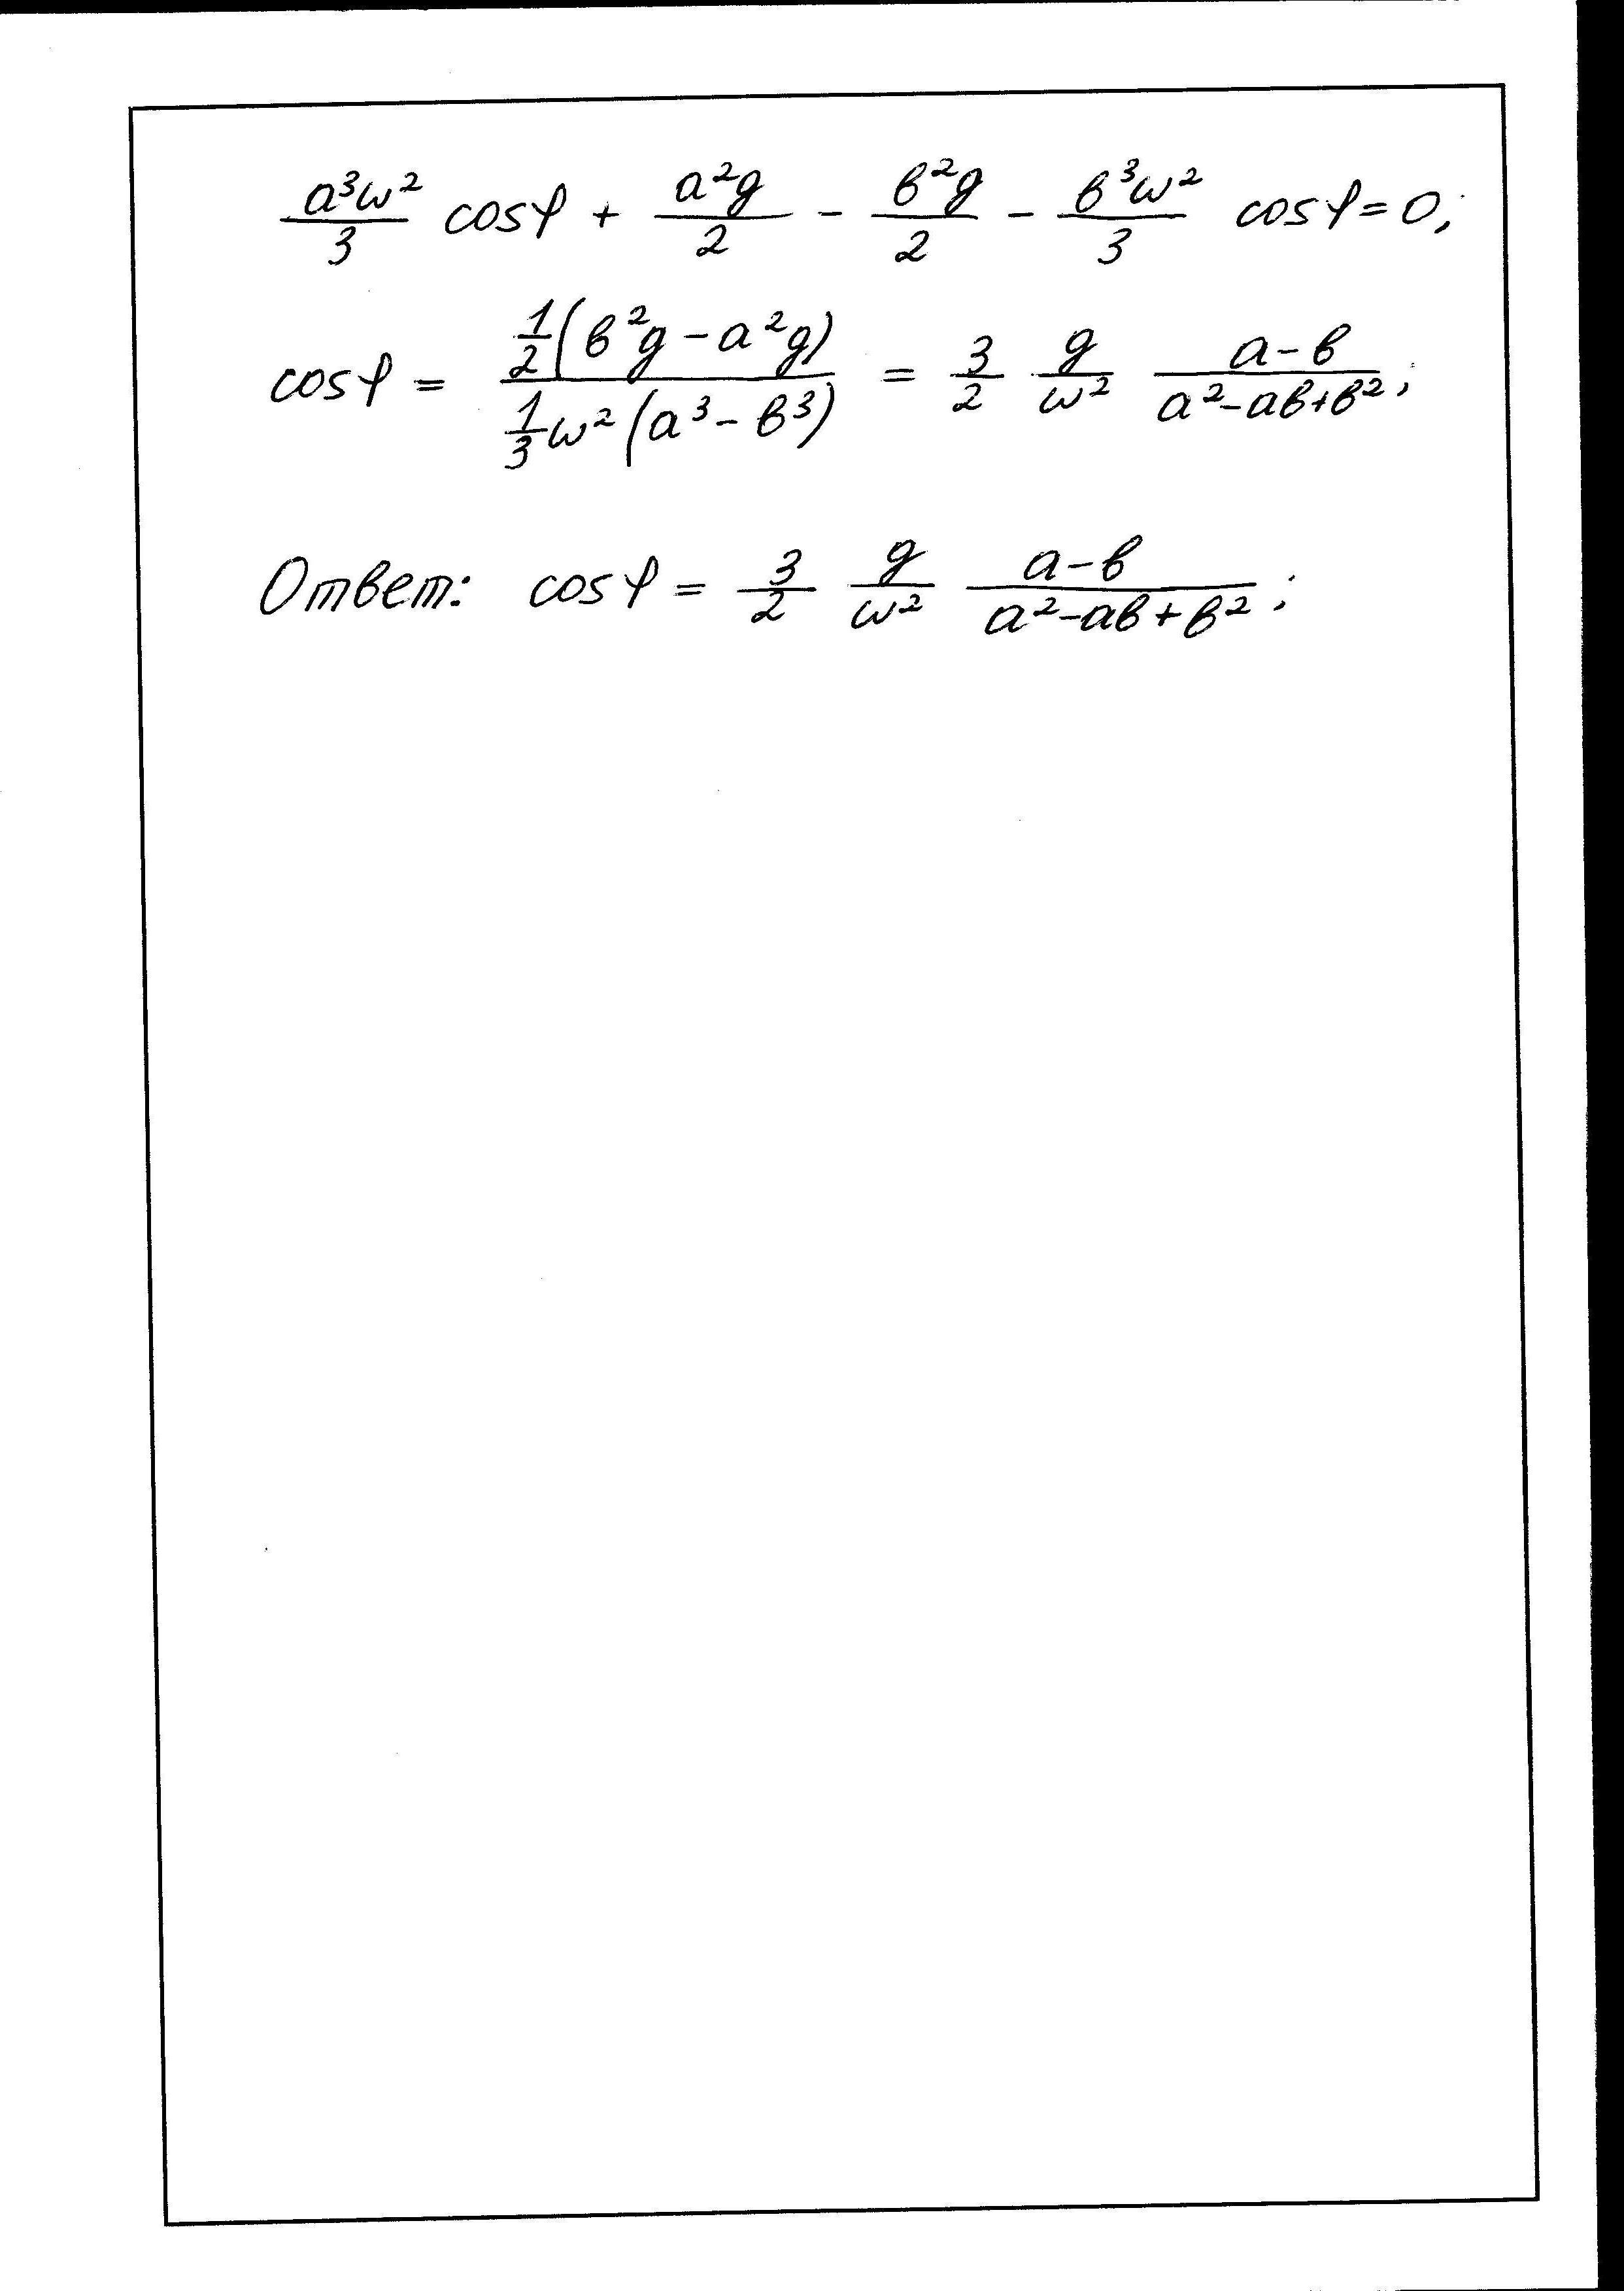 a³ω²/3 cosφ + a²g/2 - в²g/2 - в³ω²/3 cosφ = 0;
cosφ = 1/2(в²g - a²g) / 1/3ω²(a³ - в³) = 3/2 g/ω² (a-в)/(a²-aв+в²);
Ответ: cosφ = 3/2 g/ω² (a-в)/(a²-aв+в²);